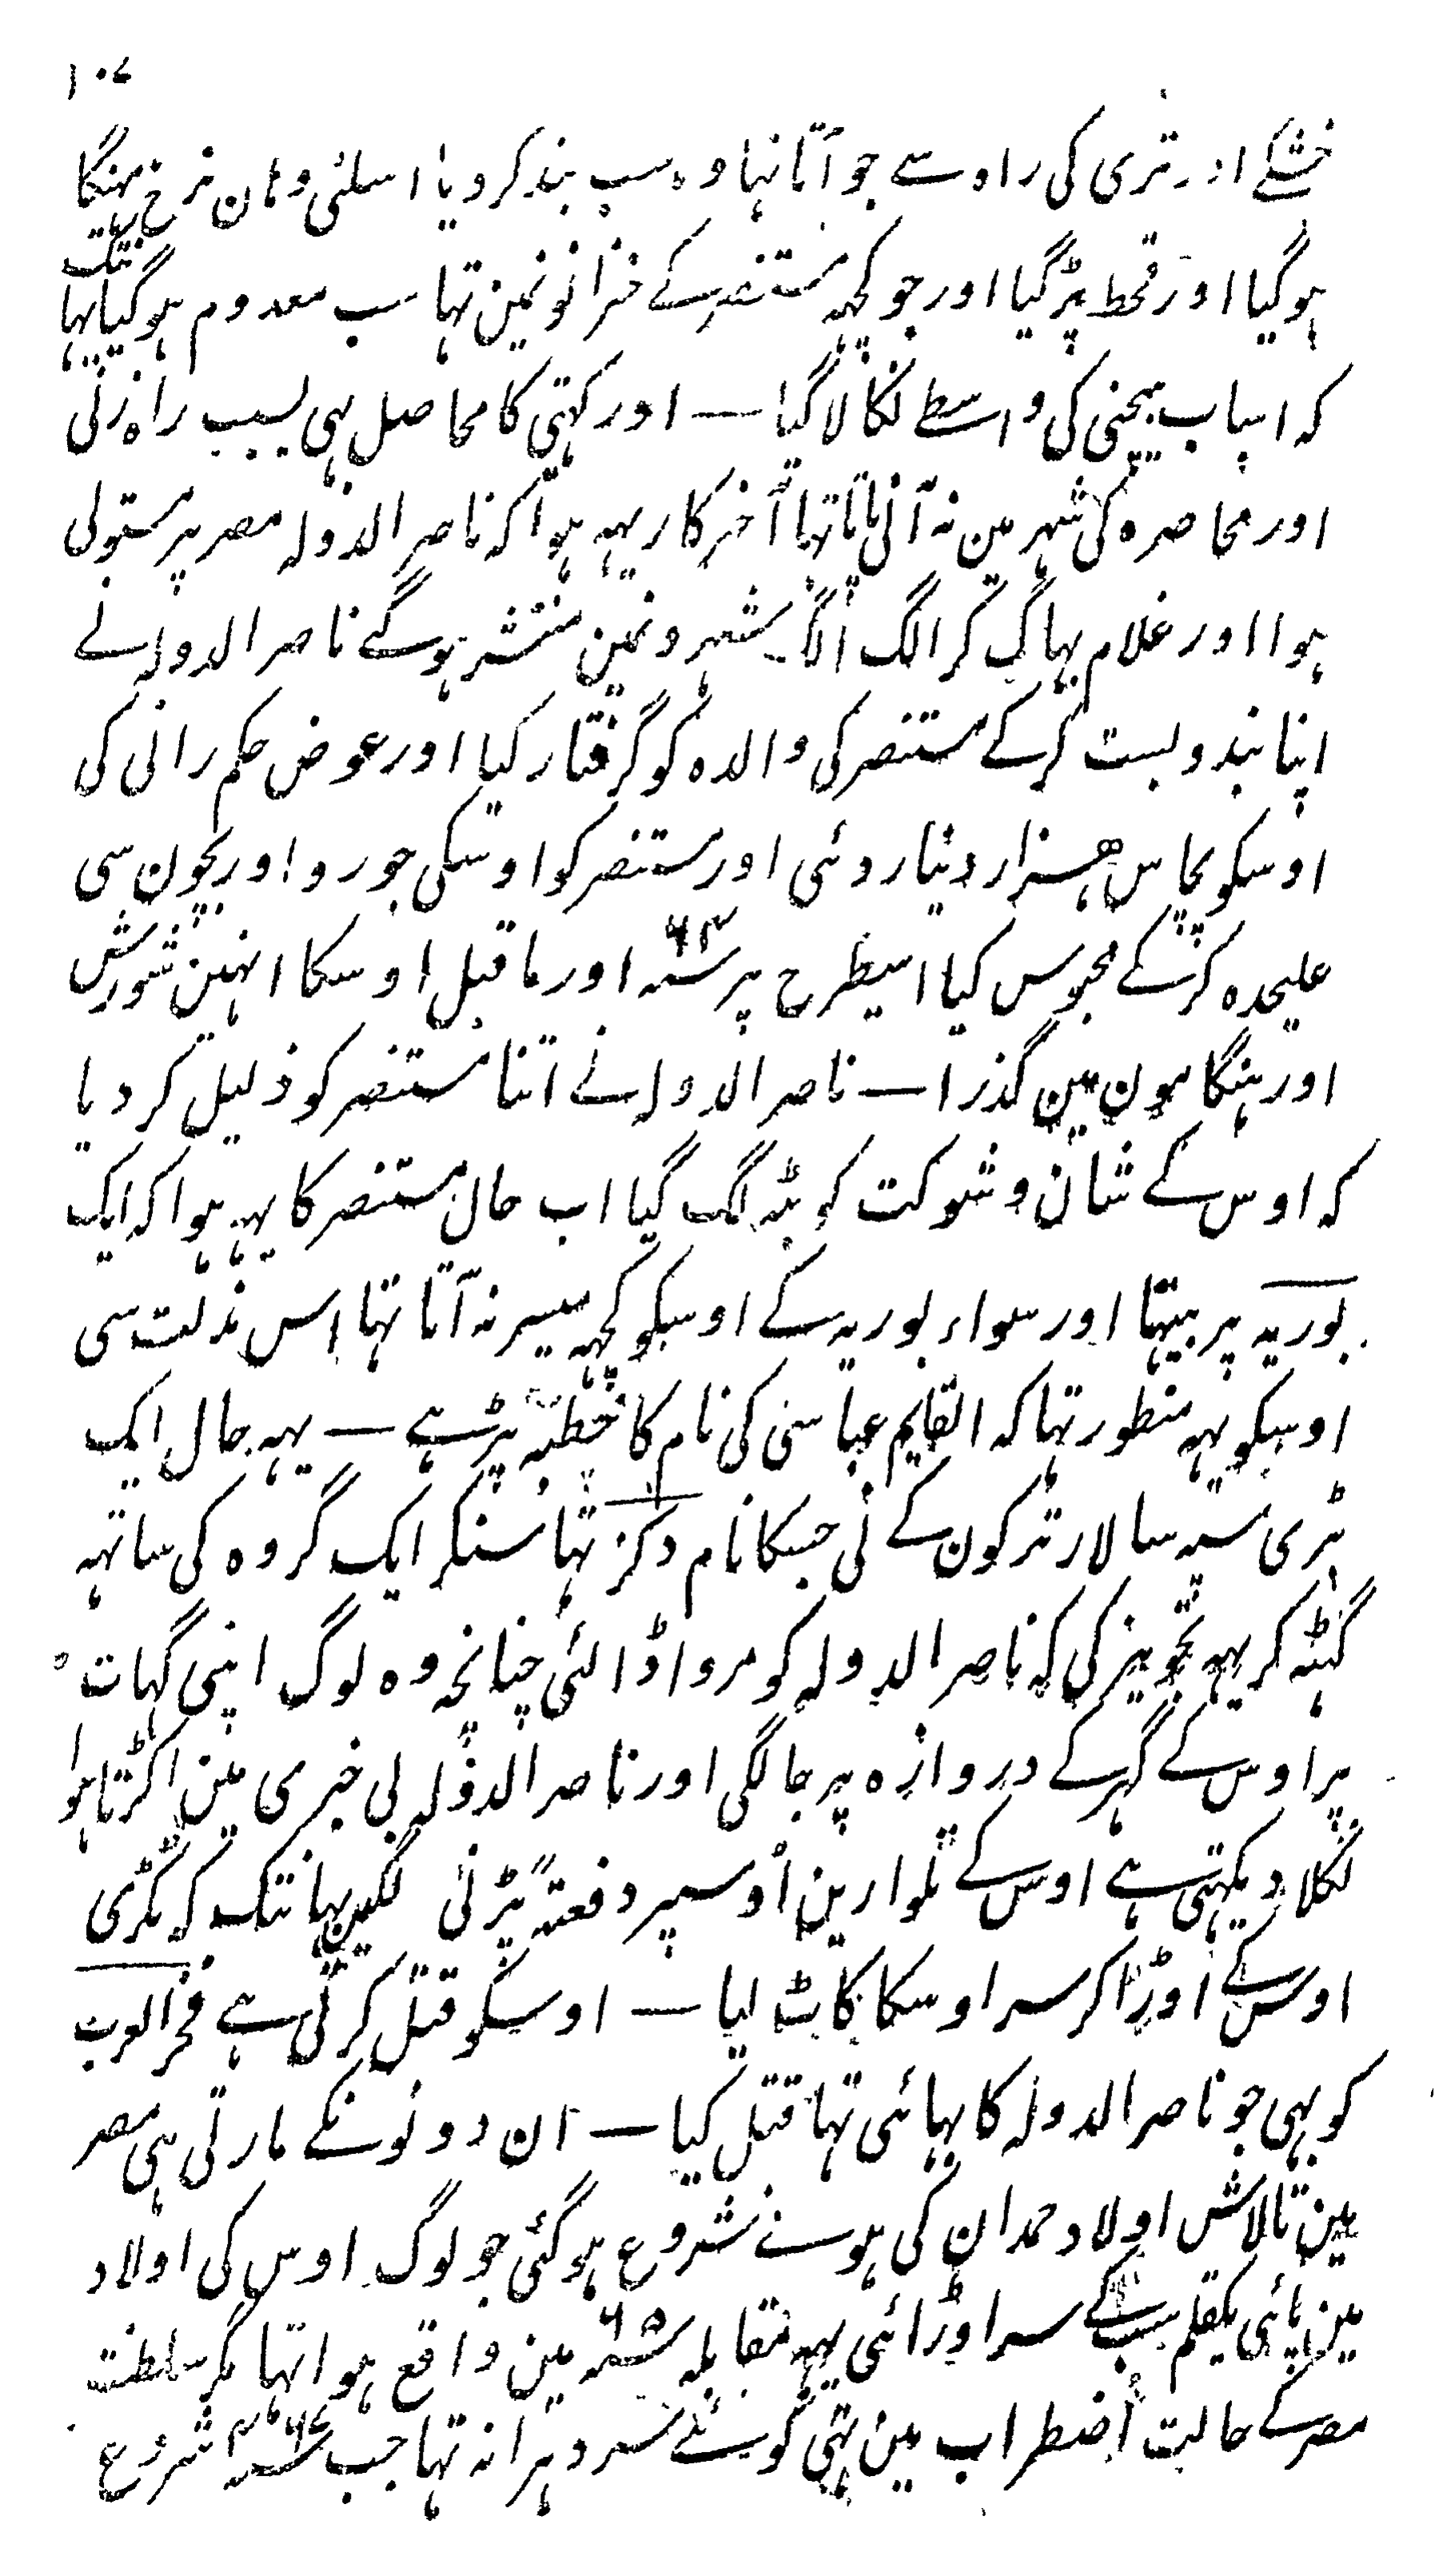 ۱۰۷
خشکے اور تری کی راہ سے جو آتا تہا وہ سب بند کر دیا اسلئی وہان نرخ مہنگا
ہو گیا اور قحط پڑ گیا اور جو کچہہ مستنصر کے خزانونمین تہا سب معدوم ہو گیا یہا نتک
کہ اسباب بیچنی کی واسطے نکالا گیا — اور کہتی کا محاصل بہی بسبب راہ زنی
اور محاصرہ کی شہر مین نہ آنی پاتا تہا آخر کار یہہ ہوا کہ ناصر الدولہ مصر پر مستولی
ہوا اور غلام بہاگ کر الگ الگ شہرونمین منتشر ہو گے ناصر الدولہ نے
اپنا بندوبست کر کے مستنصر کی والدہ کو گرفتار کیا اور عوض حکم رانی کی
اوسکو پچاس ہزار دینار دئی اور مستنصر کو اوسکی جورو اور بچون سی
علیحدہ کر کے محبوس کیا اسیطرح پر سنہ ۶۳ اور ماقبل اوسکا انہین شورش
اور ہنگامون مین گذرا — ناصر الدولہ نے اتنا مستنصر کو ذلیل کر دیا
کہ اوس کے شان و شوکت کو بٹہ لگ گیا اب حال مستنصر کا یہہ ہوا کہ ایک
بوریہ پر بیٹہا اور سواء بوریہ کے اوسکو کچہہ میسر نہ آتا تہا اس مذلت سی
اوسکو یہہ منظور تہا کہ القایم عباسی کی نام کا خطبہ پڑہے — یہہ حال ایک
بڑی سپہ سالار ترکون کے نی جسکا نام دکز تہا سنکر ایک گروہ کی ساتہہ
گنٹہہ کر یہہ تجویز کی کہ ناصر الدولہ کو مروا ڈالئی چنانچہ وہ لوگ اپنی گہات
پر اوس کے گہر کے دروازہ پر جا لگی اور ناصر الدولہ بی خبری مین اکڑتا ہوا
نکلا دیکہتی ہے اوس کے تلوارین اوسپر دفعتہً پڑنی لگین یہانتک کہ ٹکڑی
اوس کے اوڑا کر سر اوسکا کاٹ لیا — اوسکو قتل کرتی ہے فخر العرب
کو بہی جو ناصر الدولہ کا بہائی تہا قتل کیا — ان دونونکے مارتی ہی مصر
مین تالاش اولاد حمدان کی ہونے شروع ہو گئی جو لوگ اوس کی اولاد
مین پائی یکقلم سب کے سر اوڑائی یہہ مقابلہ سنہ ۶۵ مین واقع ہوا تہا مگر سلطنت
مصر کے حالت اضطراب مین تہی کوئے سر دہرا نہ تہا جب سنہ ۴۶۷ شروع